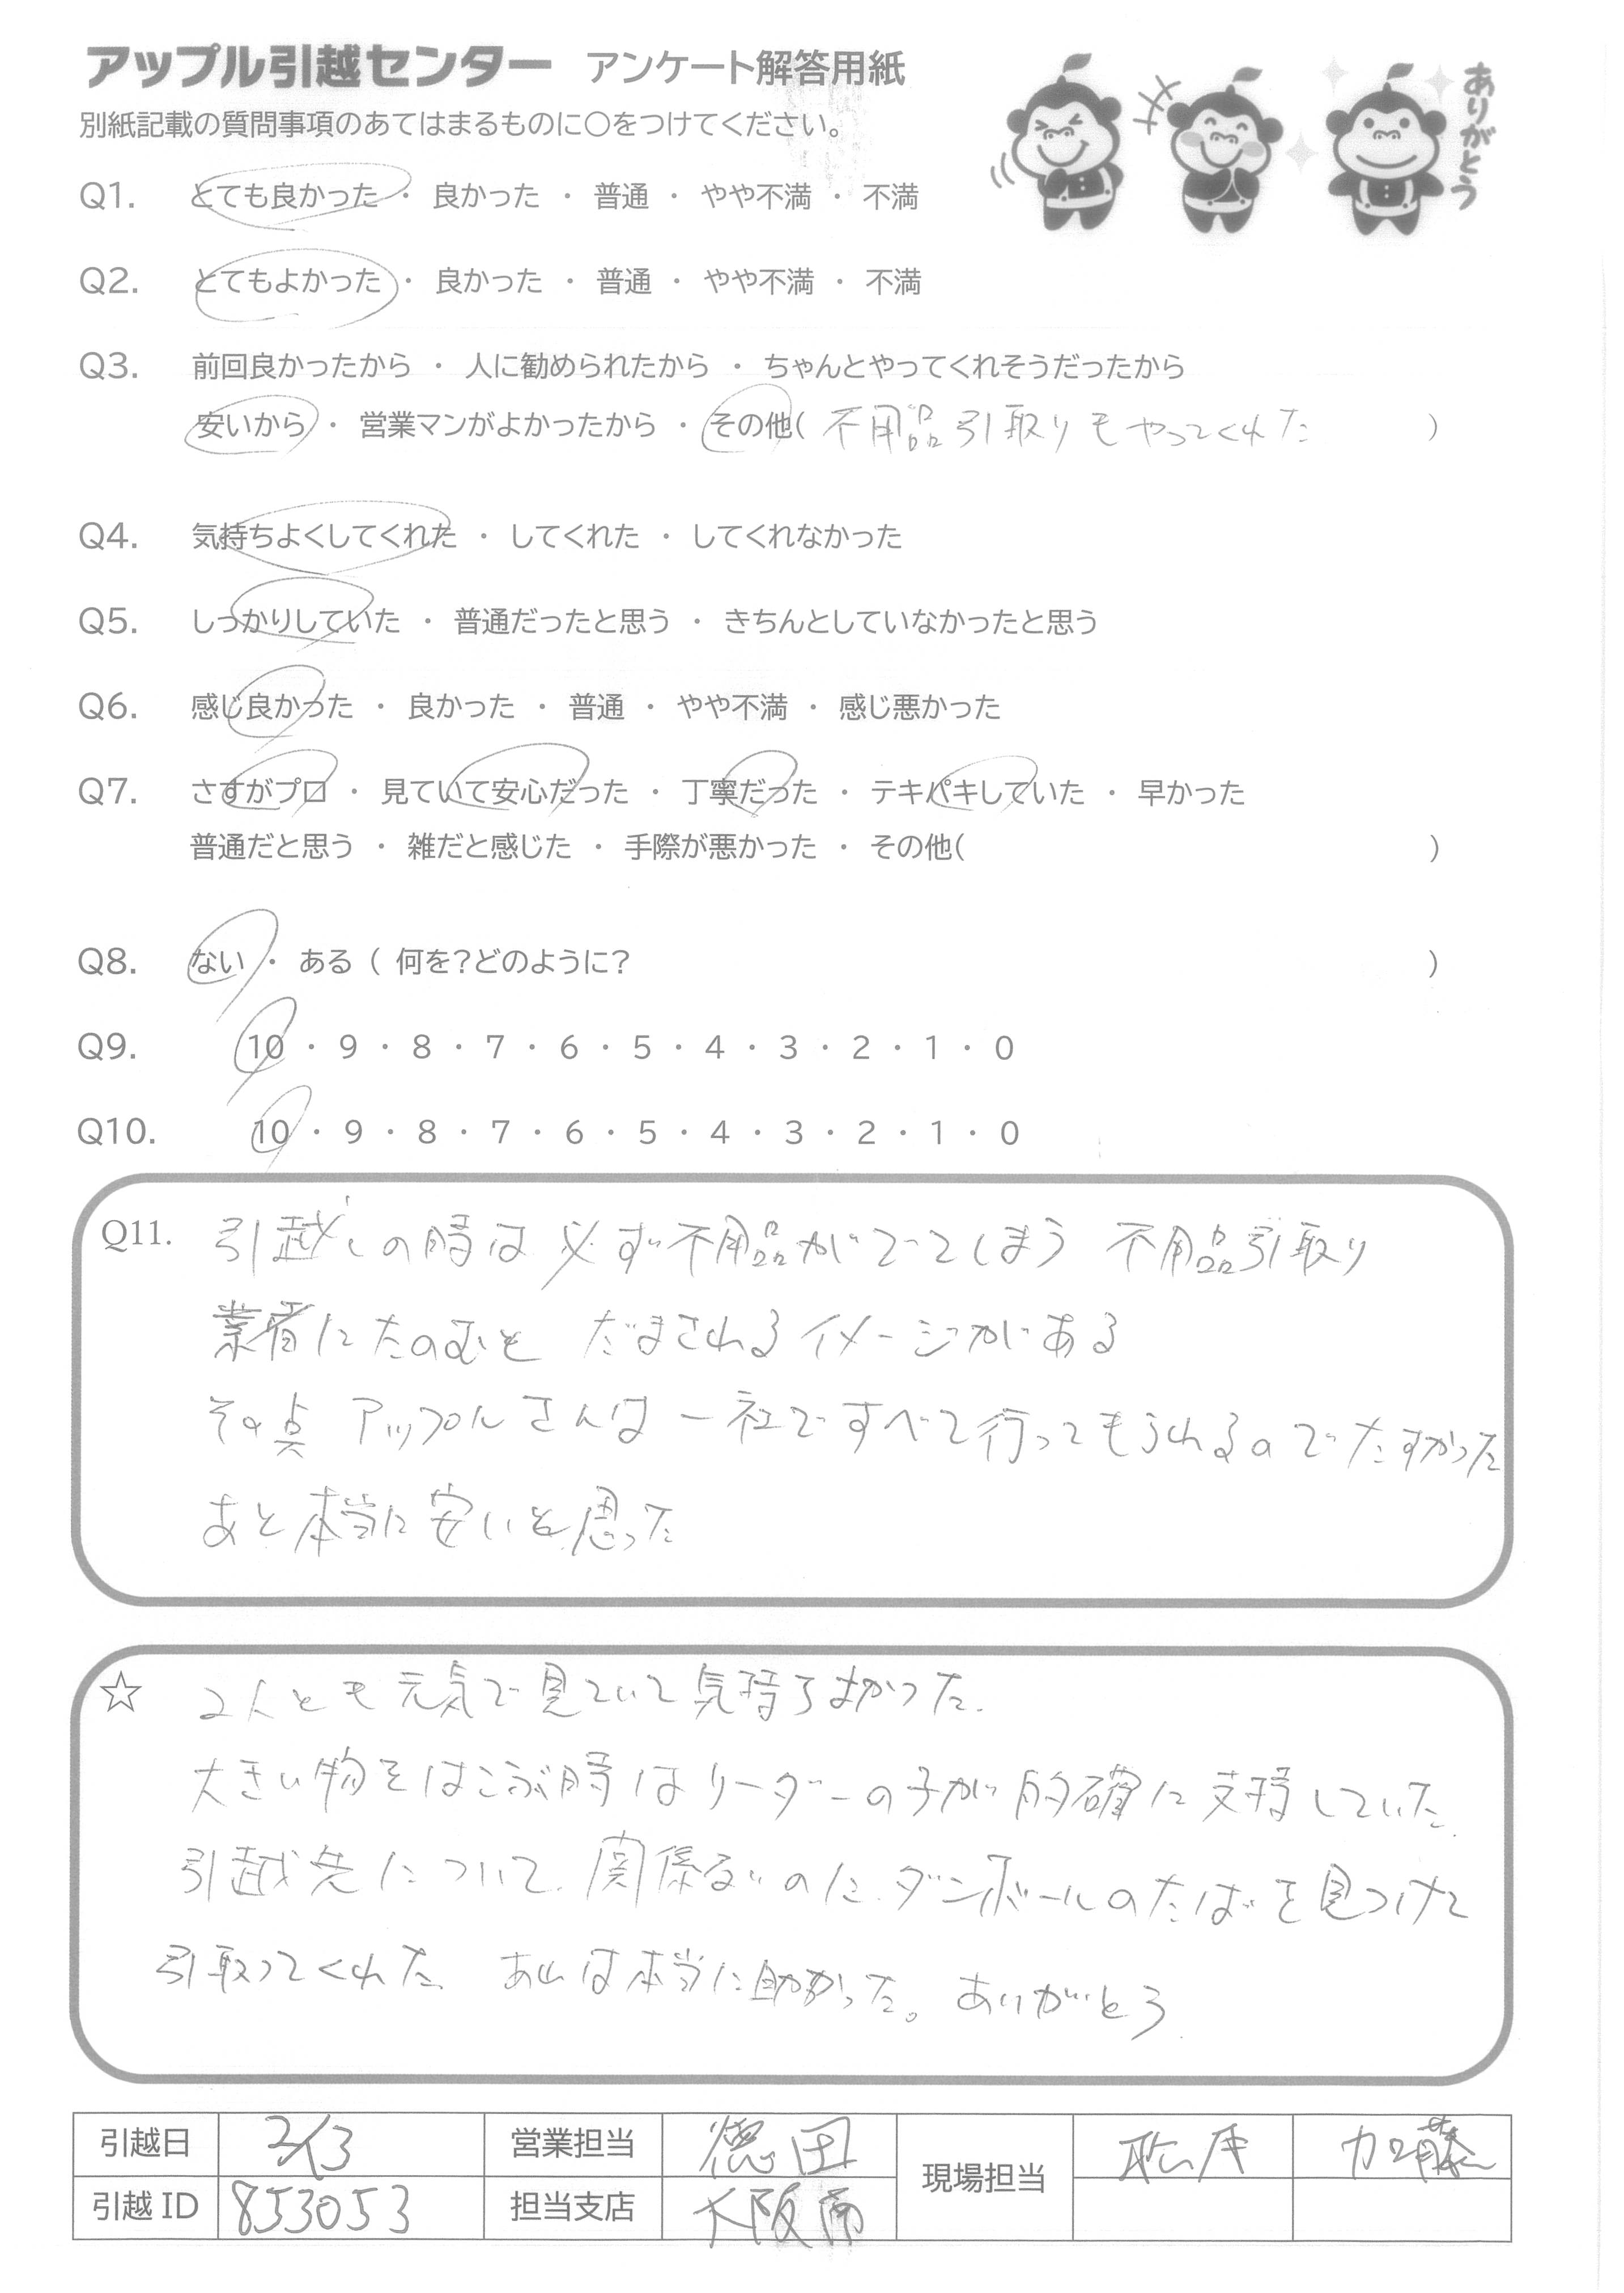 アップル引越センター アンケート解答用紙
別紙記載の質問事項のあてはまるものに○をつけてください。
ありがとう
Q1. とても良かった ・ 良かった ・ 普通 ・ やや不満 ・ 不満
Q2. とてもよかった ・ 良かった ・ 普通 ・ やや不満 ・ 不満
Q3. 前回良かったから ・ 人に勧められたから ・ ちゃんとやってくれそうだったから
安いから ・ 営業マンがよかったから ・ その他( 不用品引取りもやってくれた )
Q4. 気持ちよくしてくれた ・ してくれた ・ してくれなかった
Q5. しっかりしていた ・ 普通だったと思う ・ きちんとしていなかったと思う
Q6. 感じ良かった ・ 良かった ・ 普通 ・ やや不満 ・ 感じ悪かった
Q7. さすがプロ ・ 見ていて安心だった ・ 丁寧だった ・ テキパキしていた ・ 早かった
普通だと思う ・ 雑だと感じた ・ 手際が悪かった ・ その他( )
Q8. ない ・ ある ( 何を?どのように? )
Q9. 10 ・ 9 ・ 8 ・ 7 ・ 6 ・ 5 ・ 4 ・ 3 ・ 2 ・ 1 ・ 0
Q10. 10 ・ 9 ・ 8 ・ 7 ・ 6 ・ 5 ・ 4 ・ 3 ・ 2 ・ 1 ・ 0
Q11. 引越しの時は必ず不用品がでてしまう 不用品引取り
業者にたのむと だまされるイメージがある
その点 アップルさんは一社ですべて行ってもらえるのでたすかった
あと本当に安いと思った
☆ 2人とも元気で見ていて気持ちよかった.
大きい物をはこぶ時はリーダーの子が的確に支持していた.
引越先について、関係ないのに、ダンボールのたばを見つけて
引取ってくれた あれは本当に助かった。ありがとう
引越日 2/3 営業担当 徳田 現場担当 加藤
引越ID 853053 担当支店 大阪南